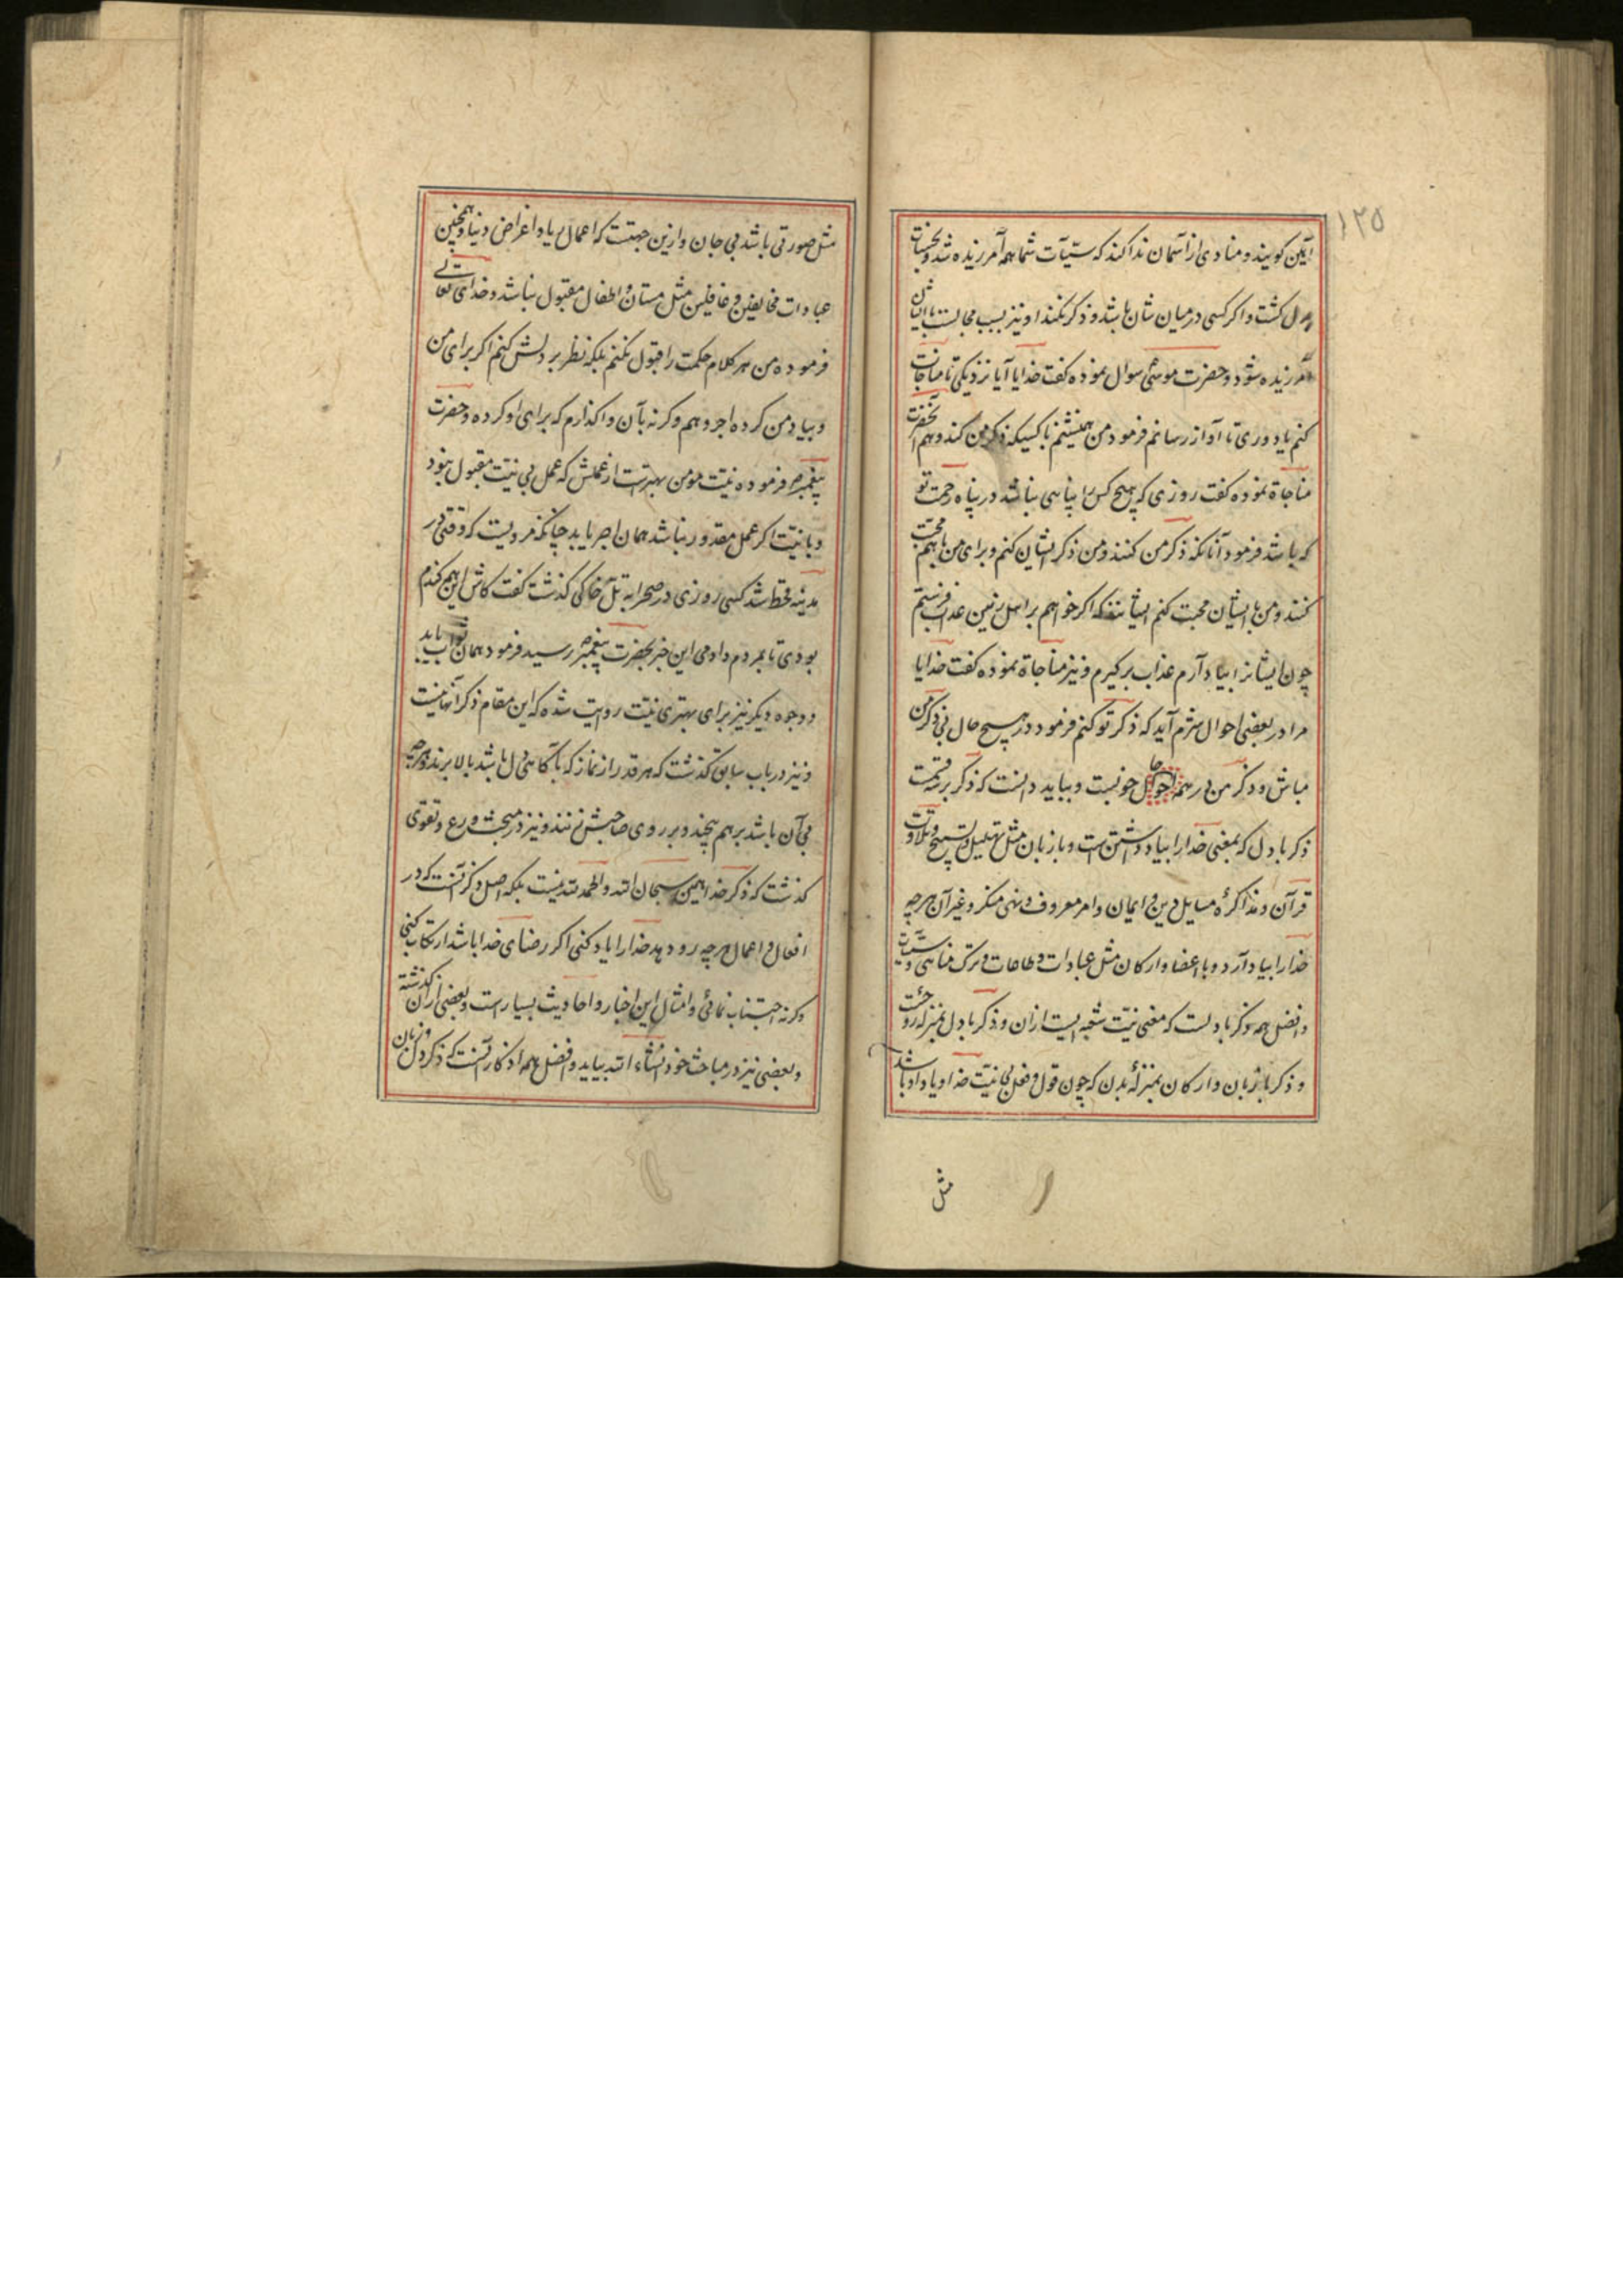 ۱۲۵
آمین کویند و منادی از آسمان ندا کند که سیّآت شما همه آمرزیده شد و بحسنات
بدل کشت و اکر کسی در میان شان باشد و ذکر نکند او نیز بسبب مجالست با ایشان
آمرزیده شود و حضرت موسی سوال نموده کفت خدایا آیا نزدیکی تا مناجات
کنم یا دوری تا آواز رسانم فرمود من همنشینم با کسیکه ذکر من کند و هم آنحضرت
مناجاة نموده کفت روزی که هیچ کس را پناهی نباشد در پناه رحمت تو
که باشد فرمود آنانکه ذکر من کنند و من ذکر ایشان کنم و برای من باهم محبّت
کنند و من با ایشان محبت کنم ایشانند که اکر خواهم بر اهل زمین عذاب فرستم
چون ایشانرا بیاد آرم عذاب برکیرم و نیز مناجاة نموده کفت خدایا
مرا در بعضی احوال شرم آید که ذکر تو کنم فرمود در هیچ حال بی ذکر من
مباش و ذکر من در همه حال خوبست و بباید دانست که ذکر بر سه قسمت
ذکر با دل که بمعنی خدا را بیاد داشتن است و با زبان مثل تهلیل و تسبیح و تلاوت
قرآن و مذاکرهٔ مسایل دین و ایمان و امر معروف و نهی منکر و غیر آن هرچه
خدا را بیاد آرد و با اعضا و ارکان مثل عبادات و طاعات و ترک مناهی و سیّآت
و افضل همه ذکر با دلست که معنی نیّت شعبه ایست ازان و ذکر با دل بمنزله روحست
و ذکر با زبان و ارکان بمنزلهٔ بدن که چون قول و فعل بی نیّت خدا و یاد او باشد
مثل
مثل صورتی باشد بی جان و ازین جهتست که اعمال بریا و اغراض دنیا و همچنین
عبادات مخالفین و غافلین مثل مستان و اطفال مقبول نباشد و خدای تعالی
فرموده من هر کلام حکمت را قبول نکنم بلکه نظر بر دلش کنم اکر برای من
و بیاد من کرده اجر دهم و کرنه بآن واکذارم که برای او کرده و حضرت
پیغمبر ص فرموده نیّت مومن بهتر است از عملش که عمل بی نیّت مقبول نبود
و با نیّت اکر عمل مقدور نباشد همان اجر یابد چنانکه مرویست که وقتی در
مدینه قحط شد کسی روزی در صحرا به تلّ خاکی کذشت کفت کاش این همه کندم
بودی تا بمردم دادمی این خبر بحضرت پیغمبر ص رسید فرمود همان ثواب یابد
و وجوه دیکر نیز برای بهتری نیّت روایت شده که این مقام ذکر آنها نیست
و نیز در باب سابق کذشت که هر قدر از نماز که با آکاهی دل باشد بالا برند و هرچه
بی آن باشد برهم پیچند و بر روی صاحبش زنند و نیز در مبحث ورع و تقوی
کذشت که ذکر خدا همین سبحان الله و الحمد لله نیست بلکه اصل ذکر آنست که در
افعال و اعمال هرچه رو دهد خدا را یاد کنی اکر رضای خدا باشد ارتکاب کنی
و کرنه اجتناب نمائی و امثال این اخبار و احادیث بسیار است و بعضی ازان کذشته
و بعضی نیز در مباحث خود انشاء الله بیاید و افضل همه اذکار آنست که ذکر دل و زبان